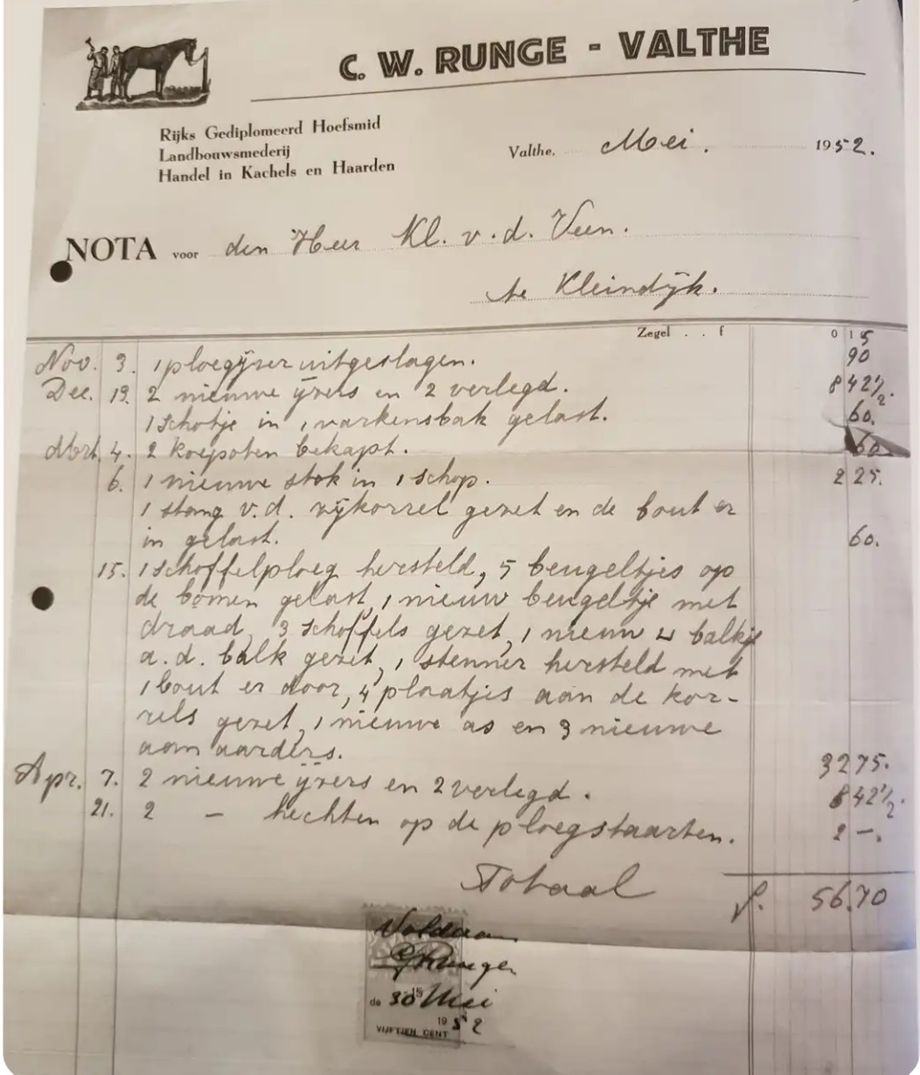 C. W. RUNGE - VALTHE
Rijks Gediplomeerd Hoefsmid
Landbouwsmederij
Handel in Kachels en Haarden
Valthe, Mei. 1952.
NOTA voor den Heer Kl. v.d. Veen.
te Kleindijk.
Zegel . . f 0 15
Nov. 3. 1 ploegijzer uitgeslagen. 90
Dec. 19. 2 nieuwe ijzers en 2 verlegd. 8 42½.
1 schotje in 1 varkensbak gelast. 60.
Mrt. 4. 2 koepoten bekapt. 60
6. 1 nieuwe stok in 1 schop. 2 25.
1 stang v.d. gezet en de bout er
in gelast. 60.
15. 1 schoffelploeg hersteld, 5 beugeltjes op
de bomen gelast, 1 nieuw beugeltje met
draad, 3 schoffels gezet, 1 nieuw balkje
a.d. balk gezet, 1 hersteld met
1 bout er door, 4 plaatjes aan de kor-
rels gezet, 1 nieuwe as en 3 nieuwe
aanaarders. 32 75.
Apr. 7. 2 nieuwe ijzers en 2 verlegd. 8 42½.
21. 2 - hechten op de ploegstaarten. 2 -.
Totaal f. 56.70
Voldaan
Runge
de 30 Mei
1952
VIJFTIEN CENT